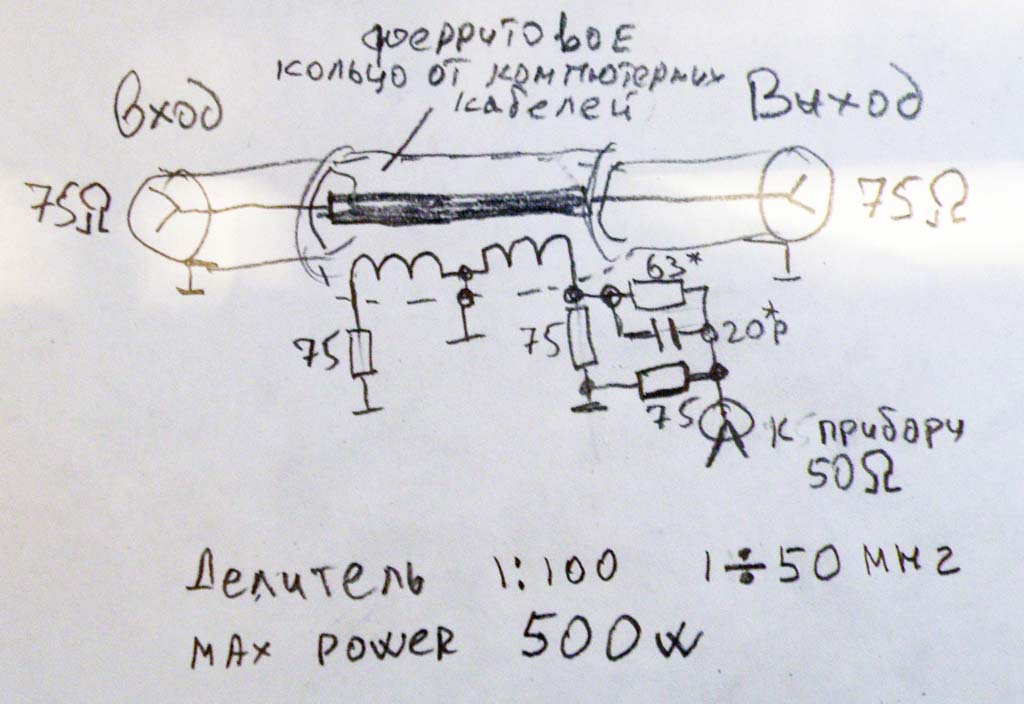 ферритовое
кольцо от компютерних
кабелей
Вход
Выход
75Ω
75Ω
63*
75
75
20*p
75
к прибору
50Ω
Делитель 1:100 1÷50 мнг
MAX POWER 500W